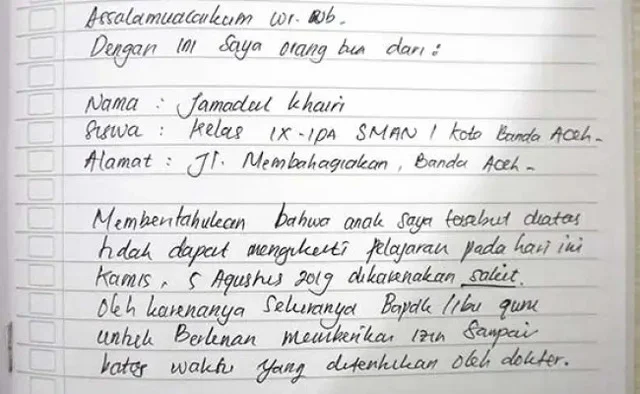 Assalamualaikum wr. wb.
Dengan ini saya orang tua dari :
Nama : Jamadul Khairi
Siswa : Kelas IX-IPA SMAN 1 Kota Banda Aceh.
Alamat : Jl. Membahagiakan, Banda Aceh.
Memberitahukan bahwa anak saya tersebut diatas
tidak dapat mengikuti pelajaran pada hari ini
Kamis, 5 Agustus 2019 dikarenakan sakit.
Oleh karenanya sekiranya Bapak/Ibu guru
untuk Berkenan memberikan izin sampai
batas waktu yang ditentukan oleh dokter.